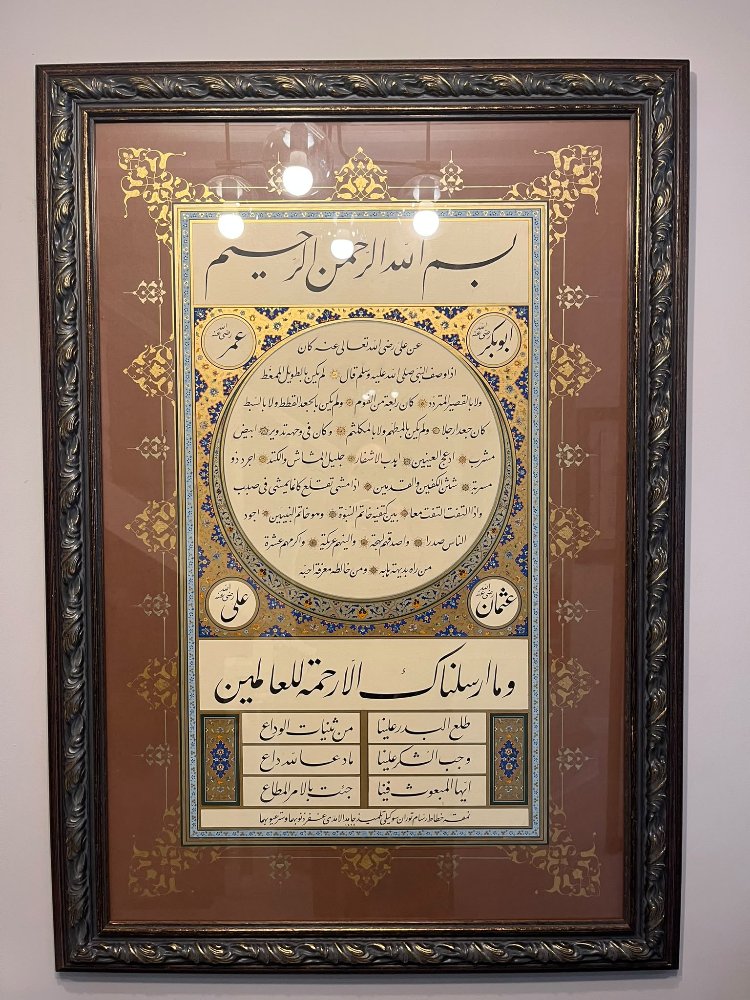 بسم الله الرحمن الرحيم
ابوبكر رضي الله عنه
عمر رضي الله عنه
عن علي رضي الله تعالى عنه كان
اذا وصف النبي صلى الله عليه وسلم قال لم يكن بالطويل الممغط
ولا بالقصير المتردد كان ربعة من القوم ولم يكن بالجعد القطط ولا بالسبط
كان جعدا رجلا ولم يكن بالمطهم ولا بالمكلثم وكان في وجهه تدوير ابيض
مشرب ادعج العينين اهدب الاشفار جليل المشاش والكتد اجرد ذو
مسربة شثن الكفين والقدمين اذا مشى تقلع كانما يمشي في صبب
واذا التفت التفت معا بين كتفيه خاتم النبوة وهو خاتم النبيين اجود
الناس صدرا واصدقهم لهجة والينهم عريكة واكرمهم عشرة
من راه بديهة هابه ومن خالطه معرفة احبه
عثمان رضي الله عنه
علي رضي الله عنه
وما ارسلناك الا رحمة للعالمين
طلع البدر علينا من ثنيات الوداع
وجب الشكر علينا ما دعا لله داع
ايها المبعوث فينا جئت بالامر المطاع
نمقه خطاط رسام توران سوكيلي تلميذ حامد الامدي غفر ذنوبهما وستر عيوبهما